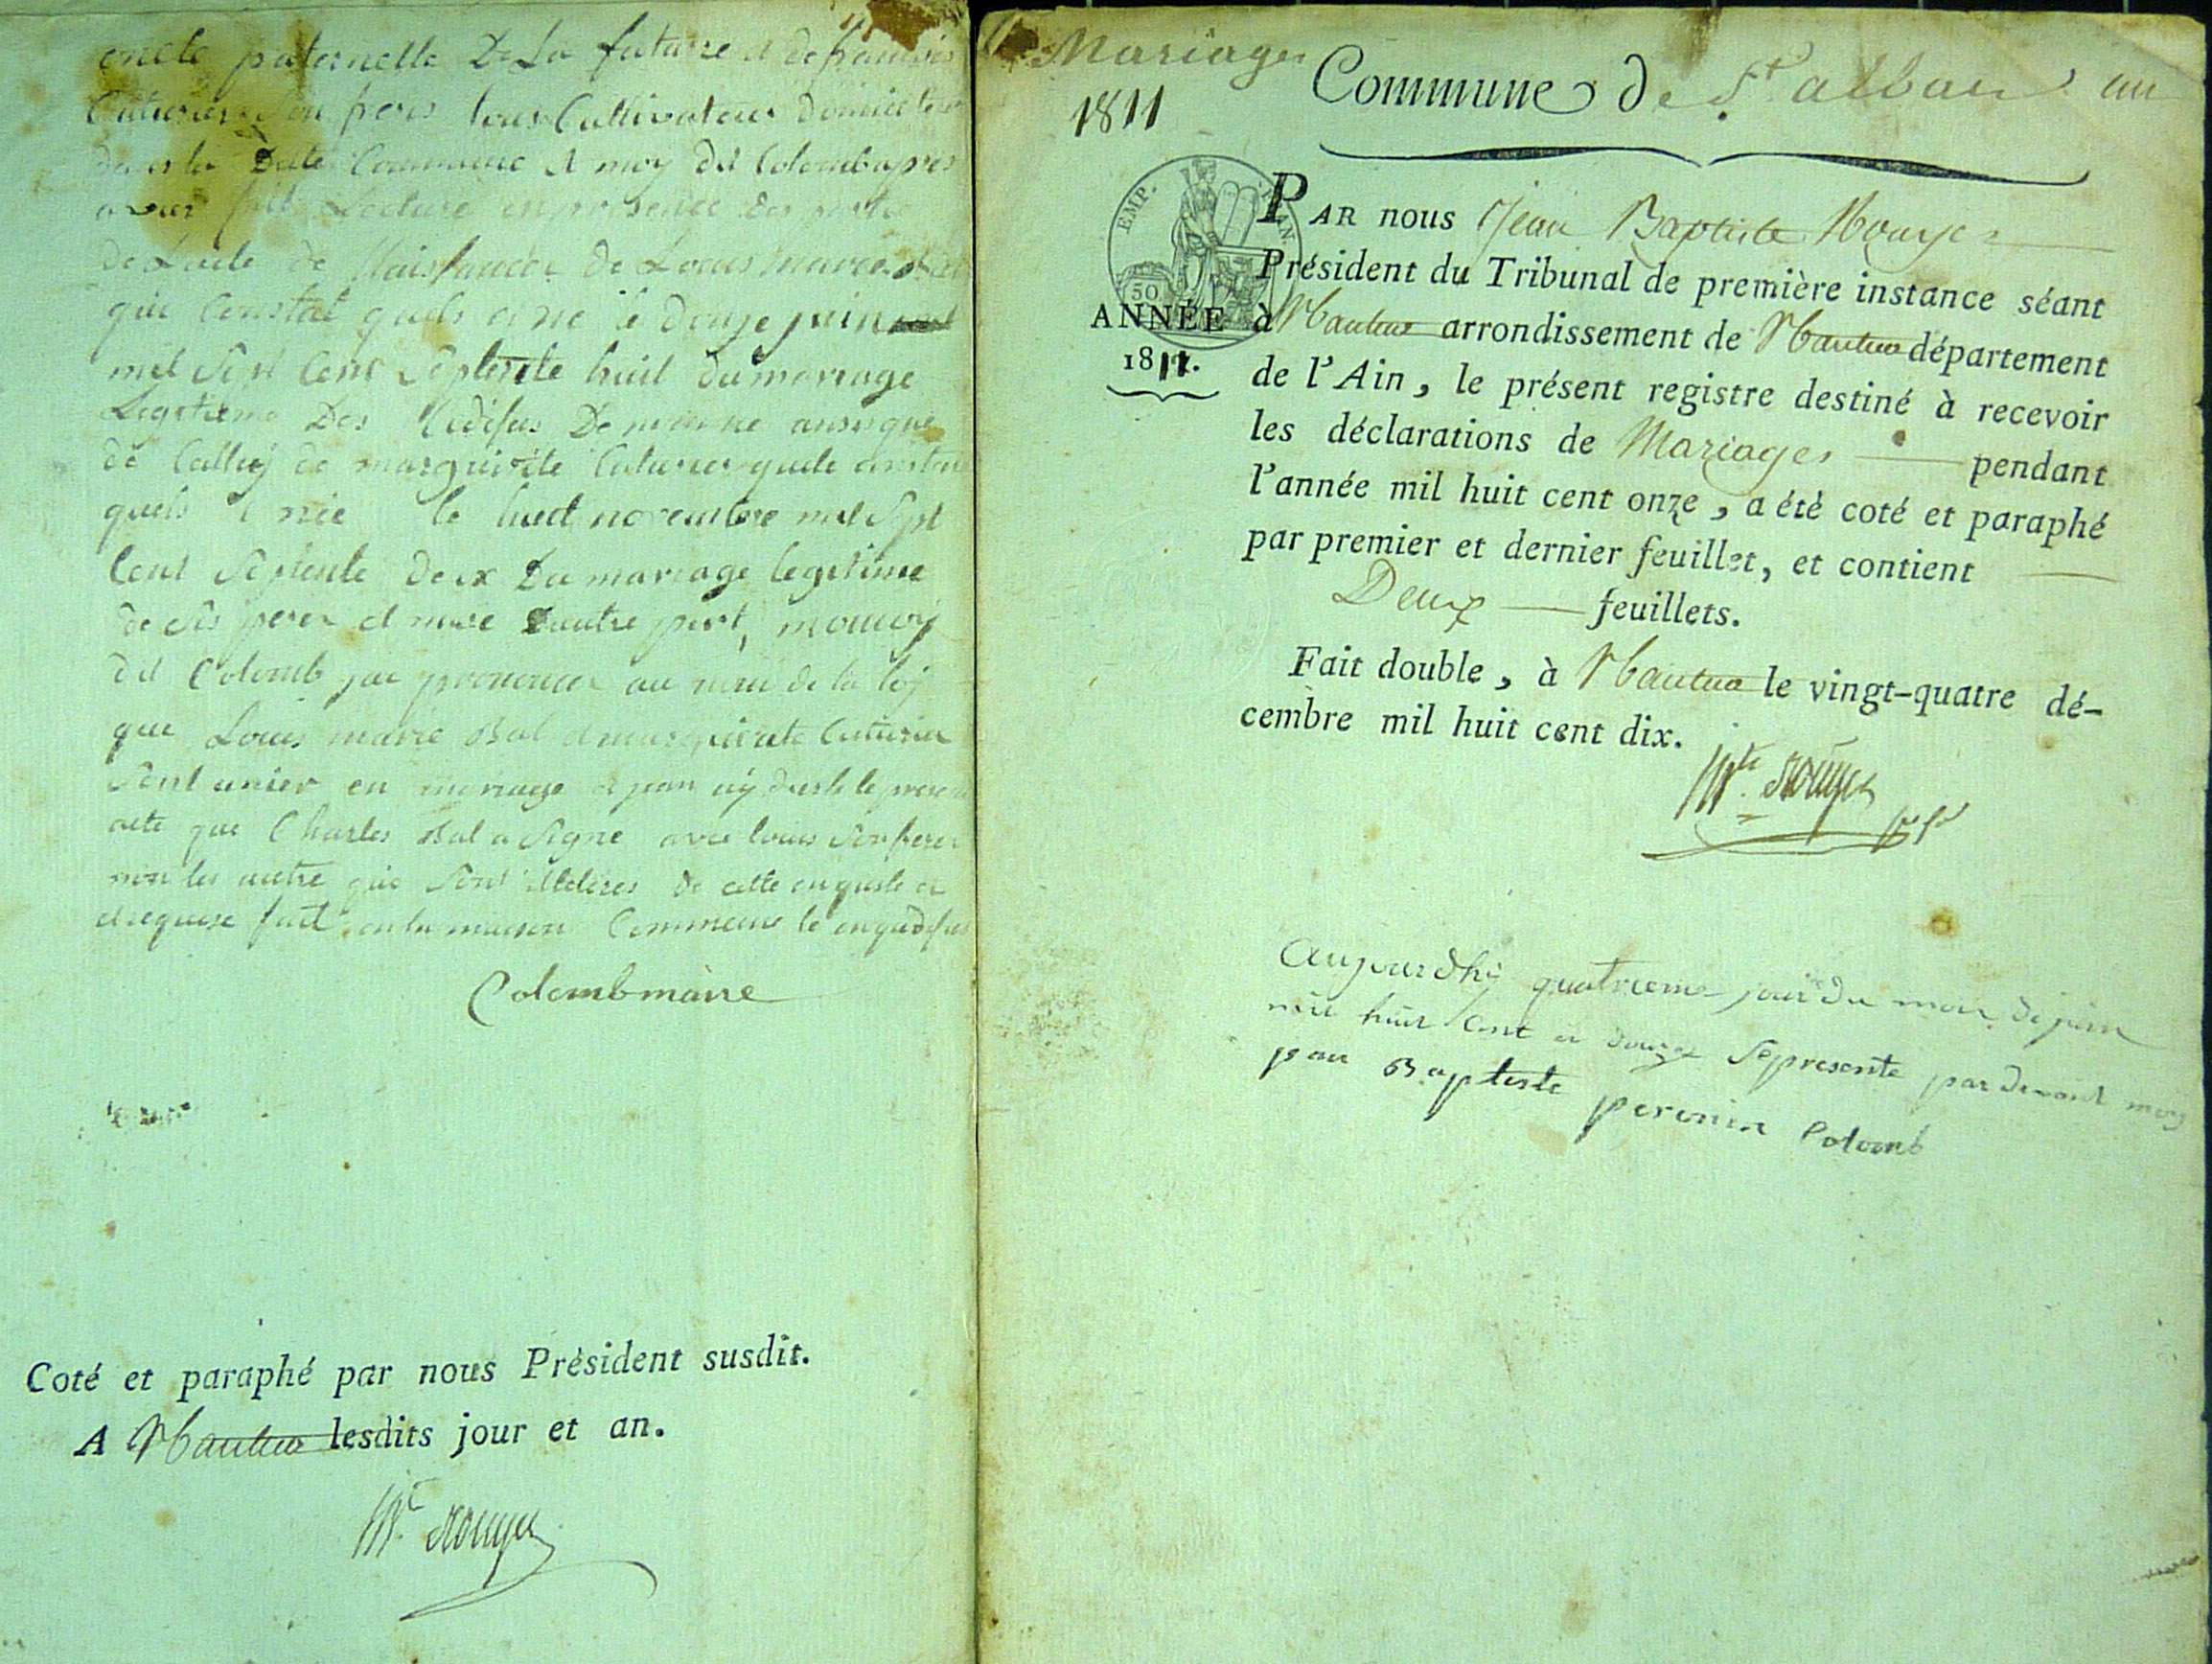 oncle paternelle De La future et de francois
Cuturier Son frere tous Cultivateur Domicilies
dans la Dite Commune et moy dit Colomb apres
avoir fait Lecture en presence des partie
de Lacte de Naissance de Louis marie Bal
qui Constat quels a né le douze juin
mil Sept Cent Septente huit du mariage
Legitime Des
de Celluy de marguerite Cuturier quele constat
quels née le huit novembre mil Sept
Cent Septente Deux Du mariage legitime
de Ses perer et mere Dautre part, moncoy
dit Colomb jai prononcer au nom de la loy
que Louis marie Bal et marguerite Cuturier
Sont unier en mariage et jean ay dresse le present
acte que Charles Bal a Signe avec louis Son frere
non les autre que Sont illeteres de cette enquete et
et requise fait en la maison Commune le
Colomb maire
Coté et paraphé par nous Président susdit.
A Nantua lesdits jour et an.
Mariages
1811
Commune de St. alban an
EMP. FRAN
50
ANNÉE
1811.
PAR nous Jean Baptiste Rouyer
Président du Tribunal de première instance séant
à Nantua arrondissement de Nantua département
de l'Ain, le présent registre destiné à recevoir
les déclarations de Mariages pendant
l'année mil huit cent onze, a été coté et paraphé
par premier et dernier feuillet, et contient
Deux feuillets.
Fait double, à Nantua le vingt-quatre dé-
cembre mil huit cent dix.
Aujourdhy quatrieme jour du mois de juin
mil huit Cent et douze Sepresente par devant moy
jean Baptiste perenin Colomb